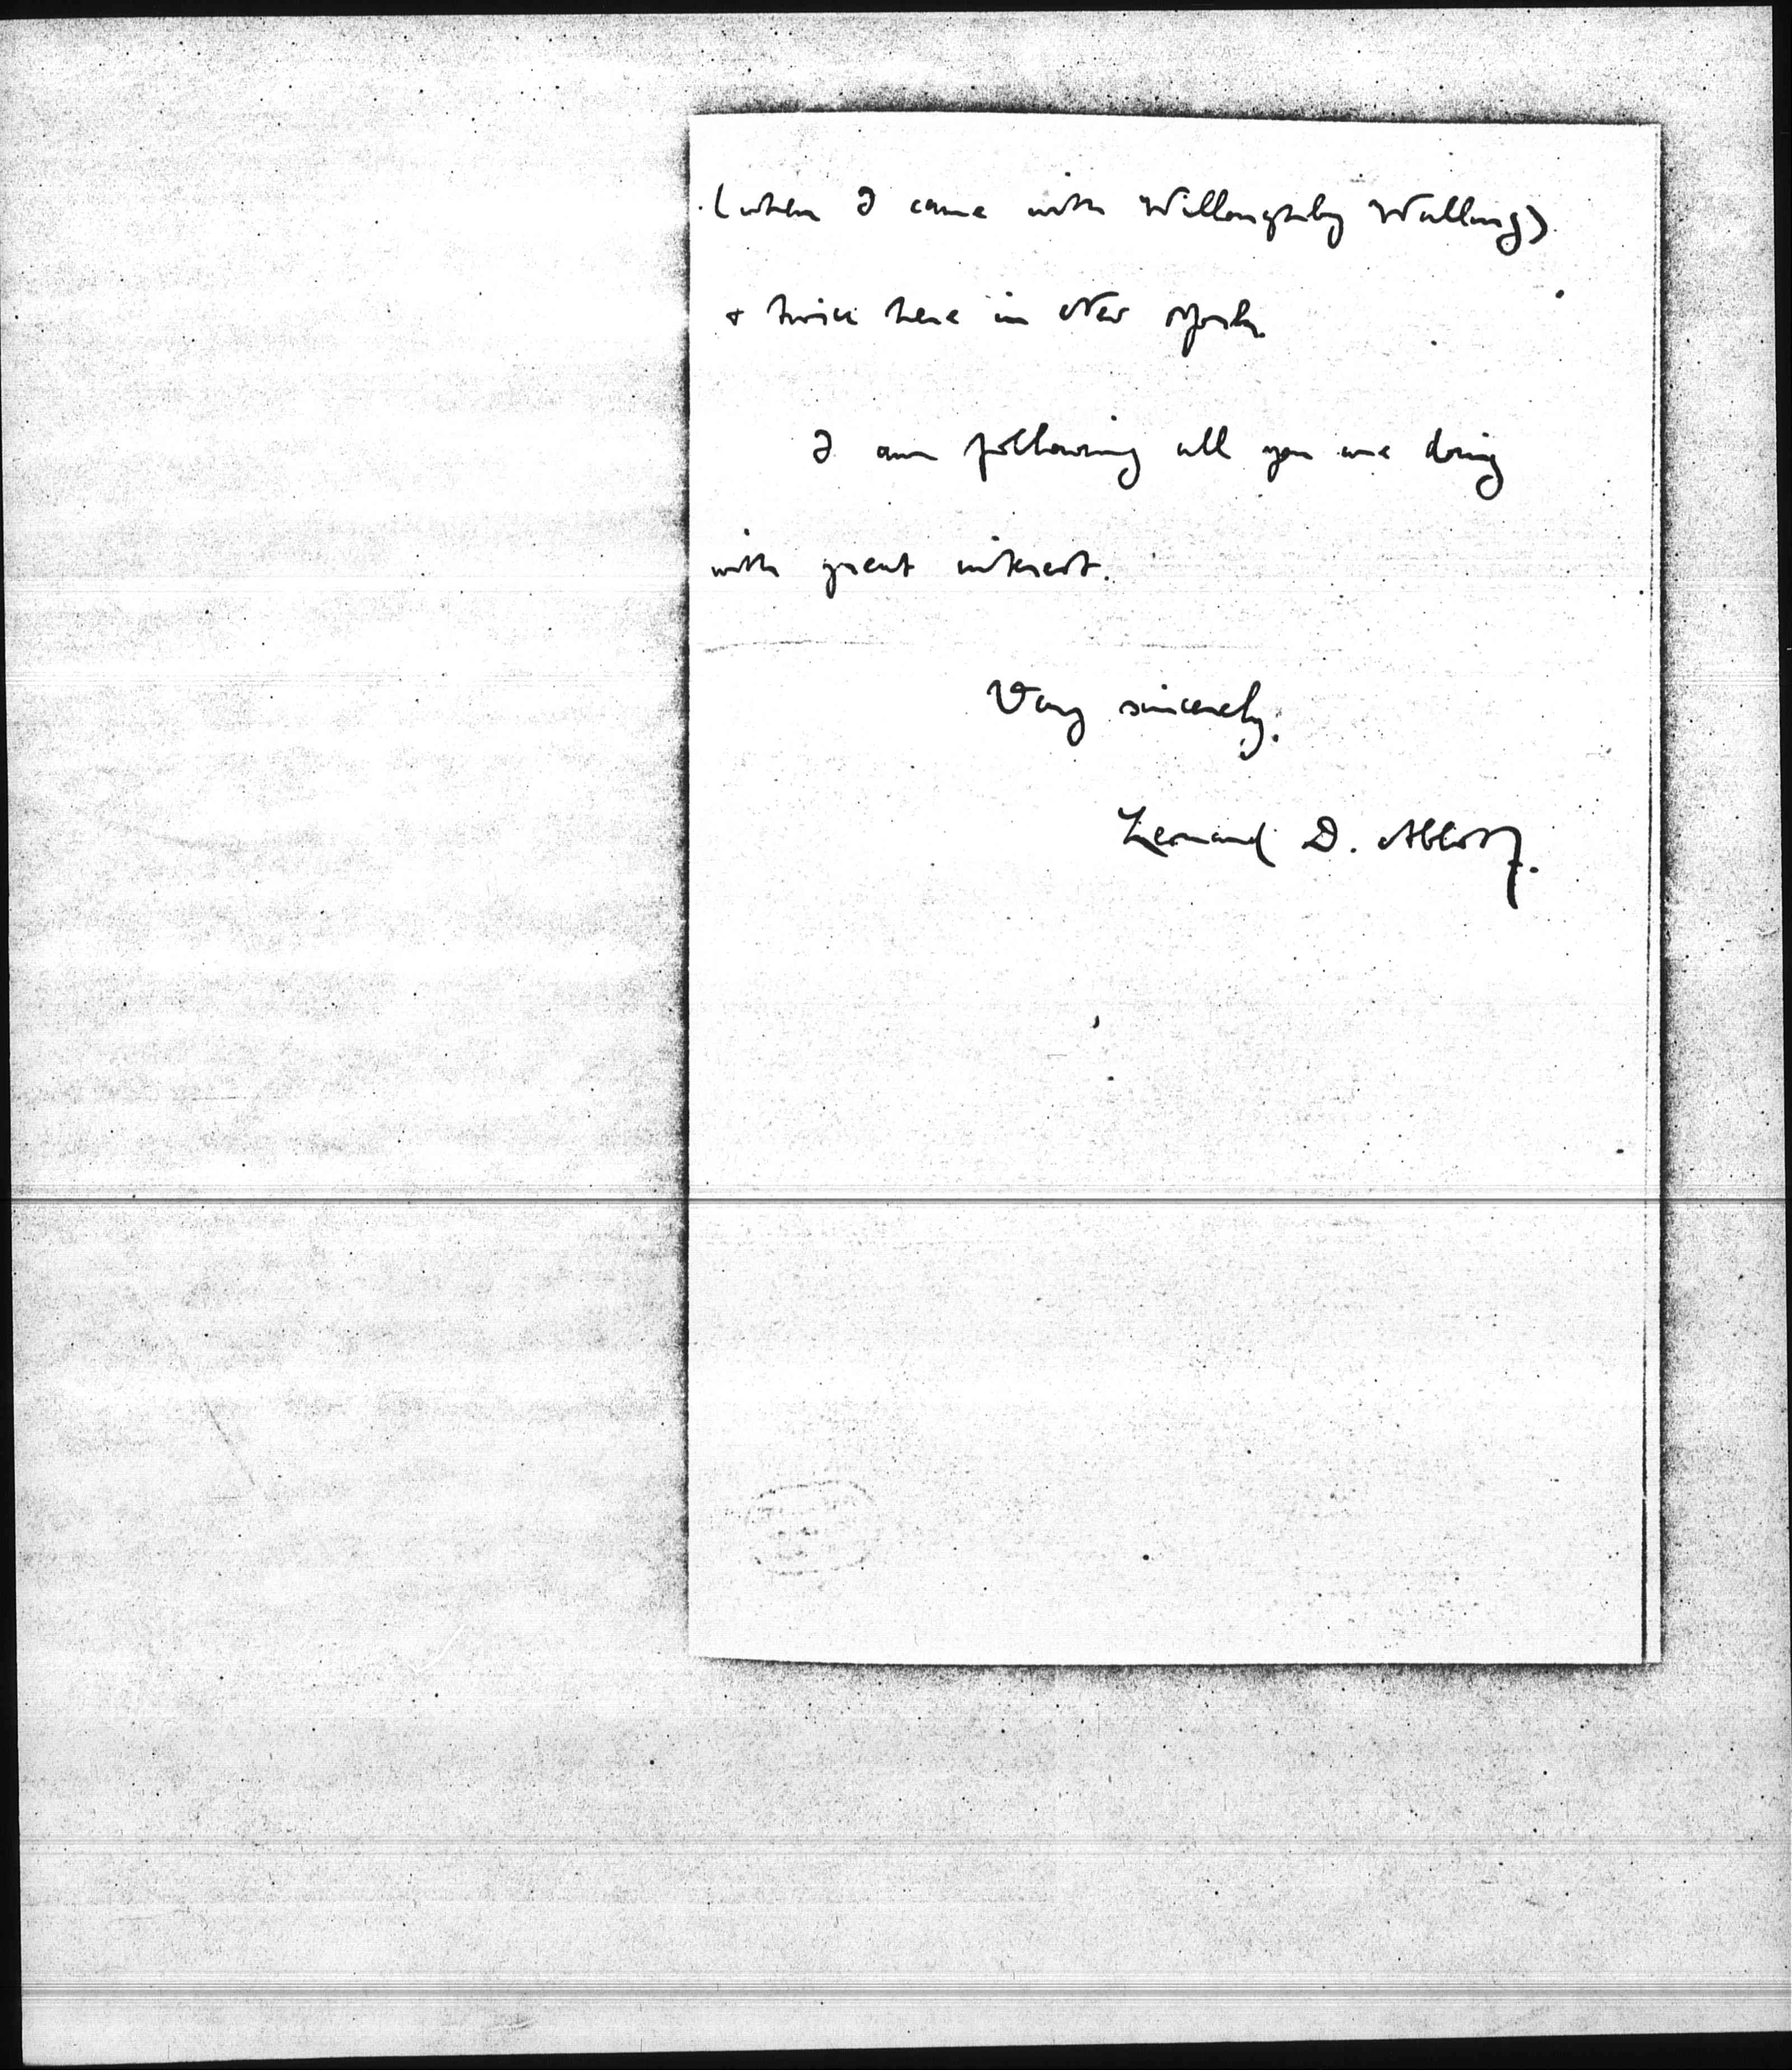 (when I came with Willoughby Walling)
& twice here in New York.
I am following all you are doing
with great interest.
Very sincerely,
Leonard D. Abbott.